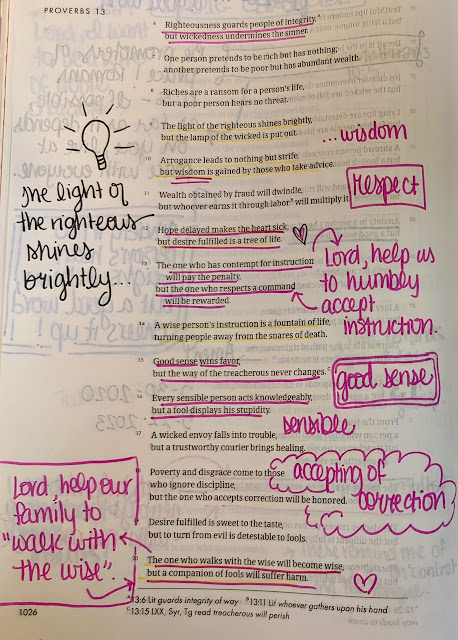 PROVERBS 13
6 Righteousness guards people of integrity,ᴬ
but wickedness undermines the sinner.
7 One person pretends to be rich but has nothing;
another pretends to be poor but has abundant wealth.
8 Riches are a ransom for a person's life,
but a poor person hears no threat.
9 The light of the righteous shines brightly,
but the lamp of the wicked is put out.
...wisdom
10 Arrogance leads to nothing but strife,
but wisdom is gained by those who take advice.
Respect
11 Wealth obtained by fraud will dwindle,
but whoever earns it through laborᴮ will multiply it.
The light of
the righteous
shines
brightly...
12 Hope delayed makes the heart sick,
but desire fulfilled is a tree of life.
13 The one who has contempt for instruction
will pay the penalty,
but the one who respects a command
will be rewarded.
Lord, help us
to humbly
accept
instruction.
14 A wise person's instruction is a fountain of life,
turning people away from the snares of death.
15 Good sense wins favor,
but the way of the treacherous never changes.ᶜ
good sense
16 Every sensible person acts knowledgeably,
but a fool displays his stupidity.
sensible
17 A wicked envoy falls into trouble,
but a trustworthy courier brings healing.
18 Poverty and disgrace come to those
who ignore discipline,
but the one who accepts correction will be honored.
accepting of
correction
19 Desire fulfilled is sweet to the taste,
but to turn from evil is detestable to fools.
Lord, help our
family to
"walk with
the wise".
20 The one who walks with the wise will become wise,
but a companion of fools will suffer harm.
1026
ᴬ13:6 Lit guards integrity of way ᴮ13:11 Lit whoever gathers upon his hand
ᶜ13:15 LXX, Syr, Tg read treacherous will perish